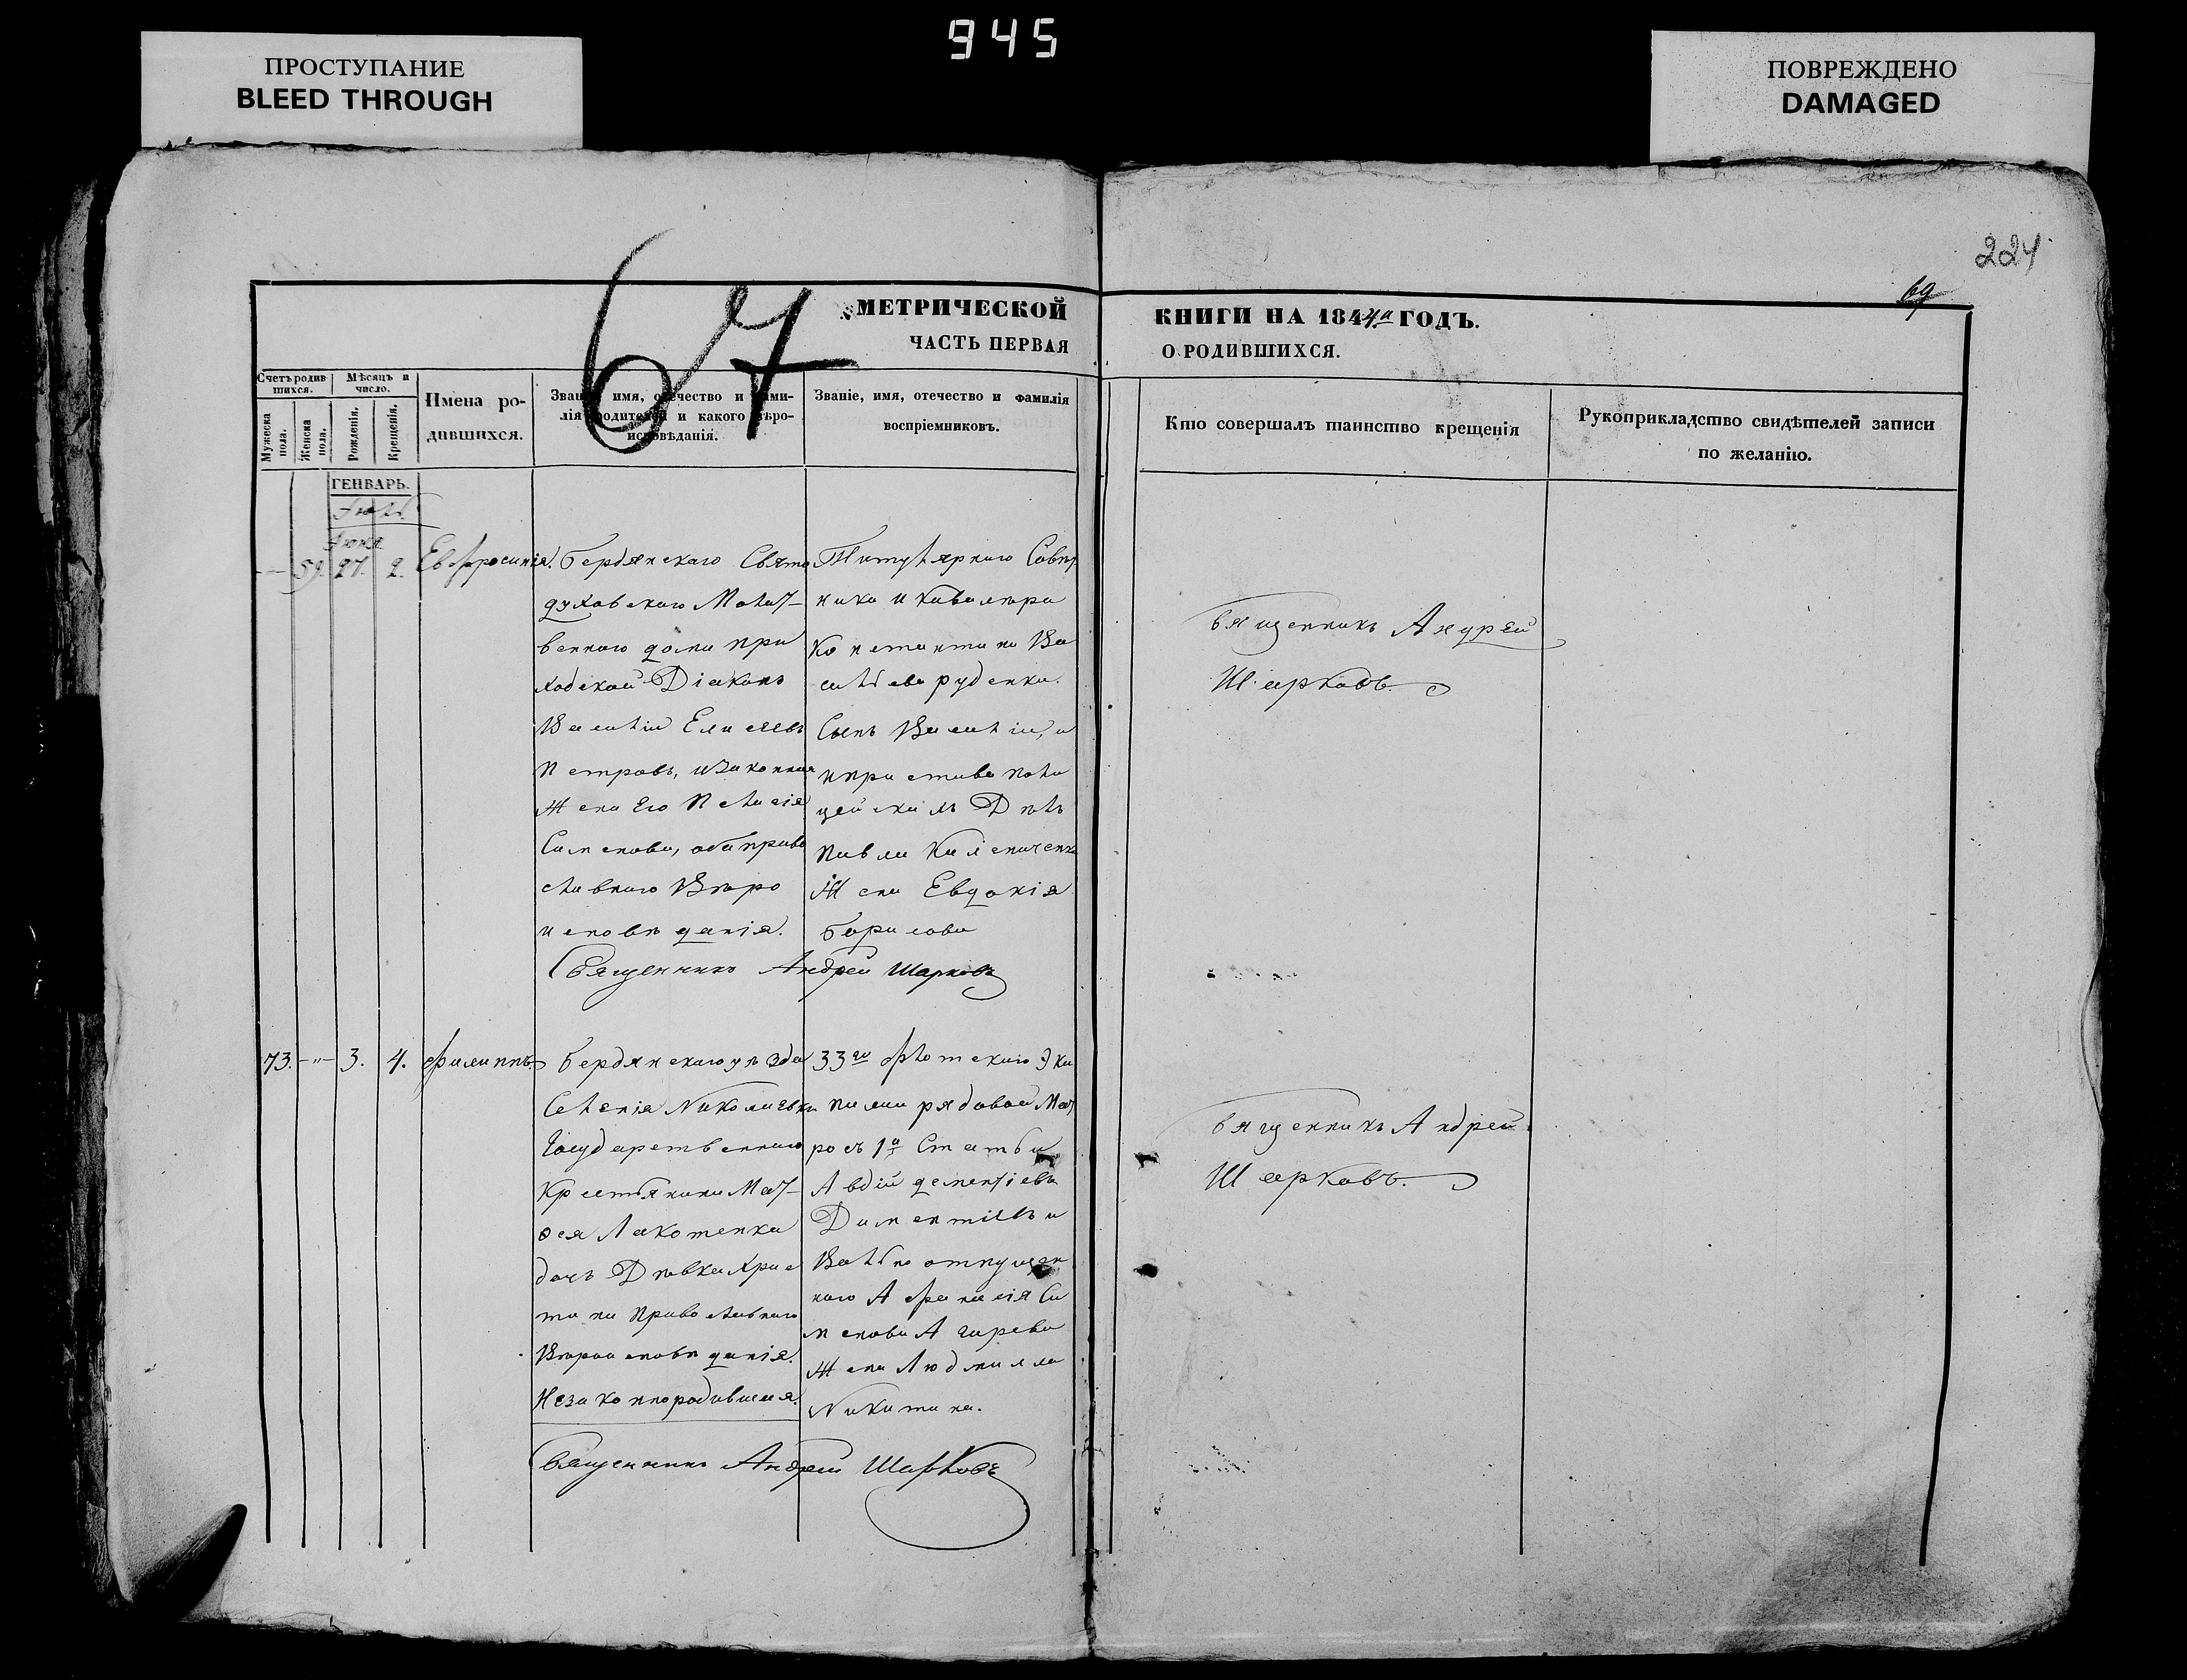 945
ПРОСТУПАНИЕ
BLEED THROUGH
ПОВРЕЖДЕНО
DAMAGED
224
69
67
МЕТРИЧЕСКОЙ
ЧАСТЬ ПЕРВАЯ
КНИГИ НА 1844й ГОДЪ.
О РОДИВШИХСЯ.
Счетъ родив
шихся.
Мужеска
пола.
Женска
пола.
Мѣсяцъ и
число.
Рожденія.
Крещенія.
Имена ро-
дившихся.
Званіе, имя, отечество и фами-
лія родителей и какого вѣро-
исповѣданія.
Званіе, имя, отечество и фамилія
воспріемниковъ.
Кто совершалъ таинство крещенія
Рукоприкладство свидѣтелей записи
по желанію.
ГЕНВАРЬ.
Іюль
Іюня
— 59. 27. 2. Евфросинія.
Бердянскаго Свято
духовскаго Молит-
веннаго дома при
ходской Діаконъ
Василій Елисеевъ
Петровъ, и законная
Жена Его Пелагія
Симеонова, оба право
славнаго Вѣро
исповѣданія.
Титулярнаго Совѣт
ника и Кавалера
Константина Ва
сильева Руденка.
Сынъ Василій, и
Пристава Поли
цейскихъ Дѣлъ
Павла
Жена Евдокія
Борисова
Священникъ Андрей Шарковъ
Священникъ Андрей
Шарковъ.
73. —"— 3. 4. Филиппъ.
Бердянскаго уѣзда
Селенія Николаевки
Государственнаго
Крестьянина Мат-
ѳея Лакотенка
дочь Дѣвка Хрис
тина Православнаго
Вѣроисповѣданія.
Незаконнородившійся.
33го Флотскаго Эки
пажа рядовой Мат
росъ 1й Статьи
Авдій Дементіевъ
Дементіевъ и
Вольно отпущен
наго Афанасія Си
менова Агарева
Жена Людмилла
Никитина.
Священникъ Андрей Шарковъ
Священникъ Андрей
Шарковъ.